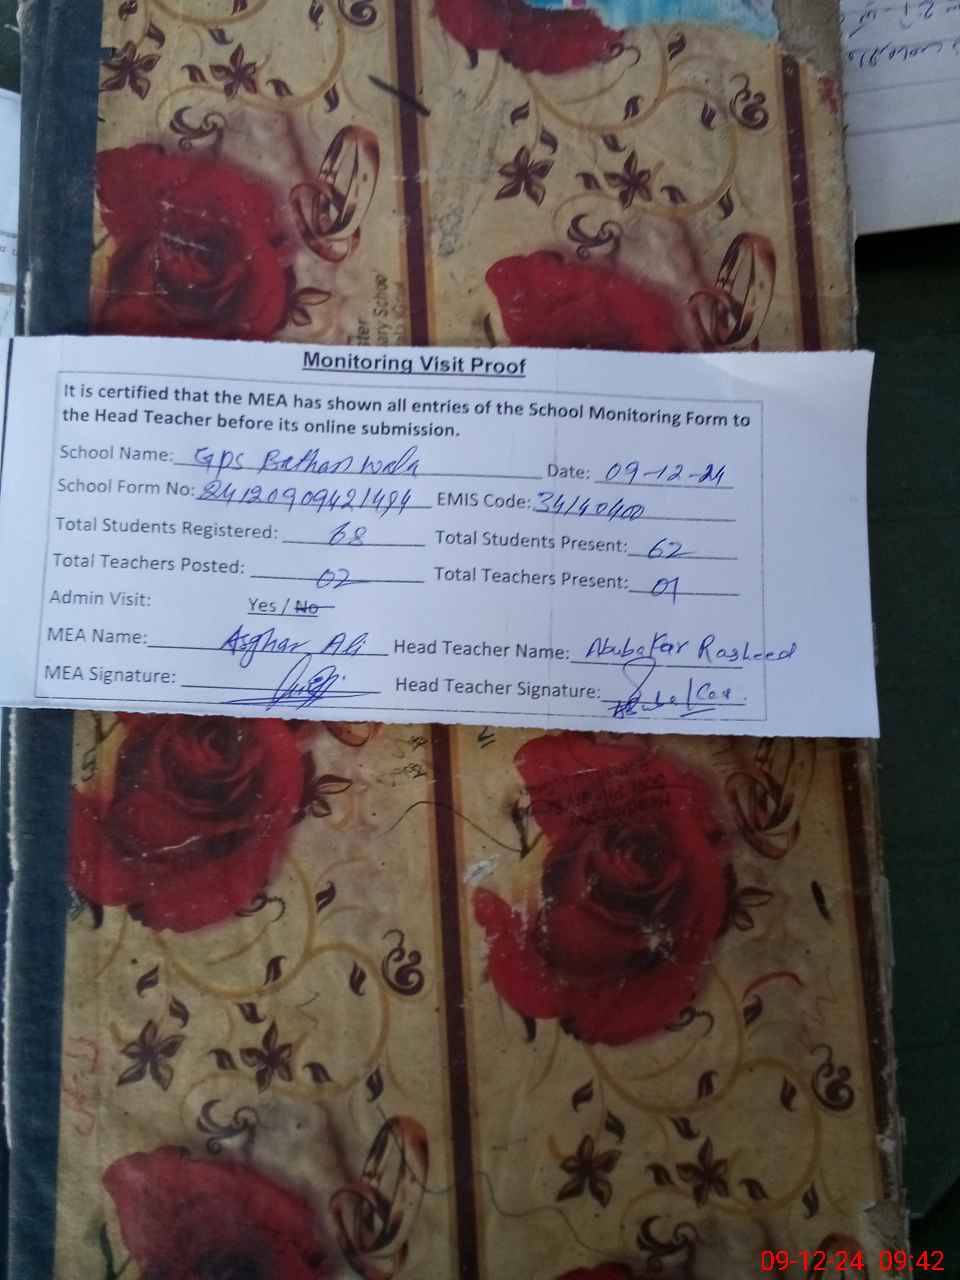 ary School
Monitoring Visit Proof
It is certified that the MEA has shown all entries of the School Monitoring Form to
the Head Teacher before its online submission.
School Name: GPS Bathan wala Date: 09-12-24
School Form No: 24120909421494 EMIS Code: 34140400
Total Students Registered: 68 Total Students Present: 62
Total Teachers Posted: 02 Total Teachers Present: 01
Admin Visit: Yes / No
MEA Name: Asghar Ali Head Teacher Name: Abubakar Rasheed
MEA Signature: Head Teacher Signature: Abubakar
09-12-24 09:42